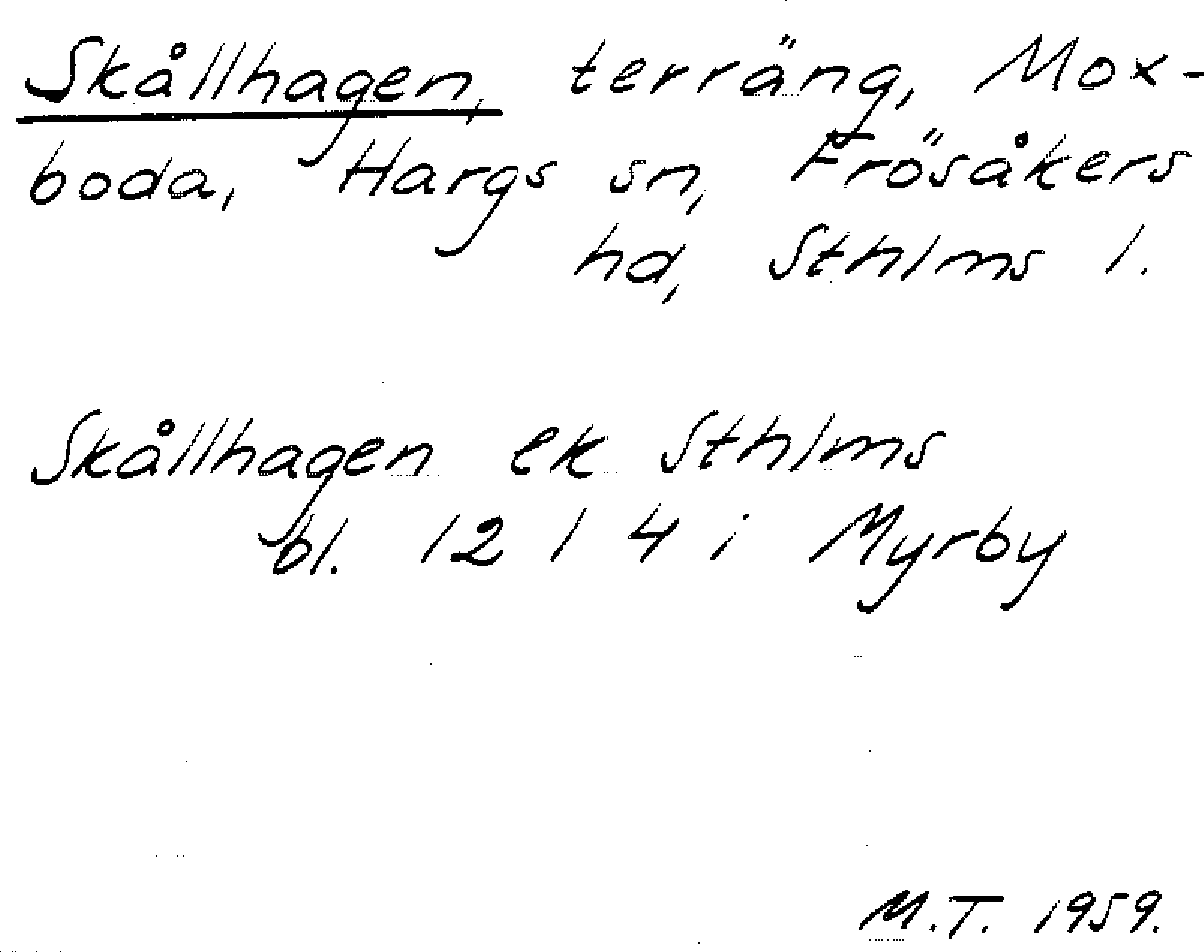 Skållhagen, terräng, Mox-
boda, Hargs sn, Frösåkers
hd, Sthlms l.
Skållhagen ek Sthlms
bl. 12 1 4 i Myrby
M.T. 1959.